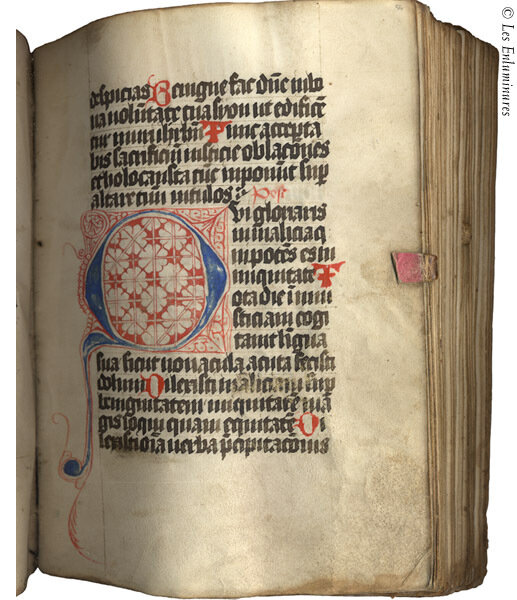 despicias Benigne fac dñe in bo
na volūtate tua syon ut edificē
tur muri ihrlm̄ Tunc accepta
bis sacrificiū iusticie oblacōnes
et holocausta tūc inponūt sup̄
altare tuū vitulos
Qui gloriaris
in malicia q
i potēs es in
iniquitate T
ota die iniu
sticiam cogi
tavit līgua
tua sicut novacula acuta fecisti
dolum Dilexisti maliciam sup̄
benignitatem iniquitatē ma
gis loqui quam equitatē Di
lexisti oīa verba p̄cipitacōnis
© Les Enluminures